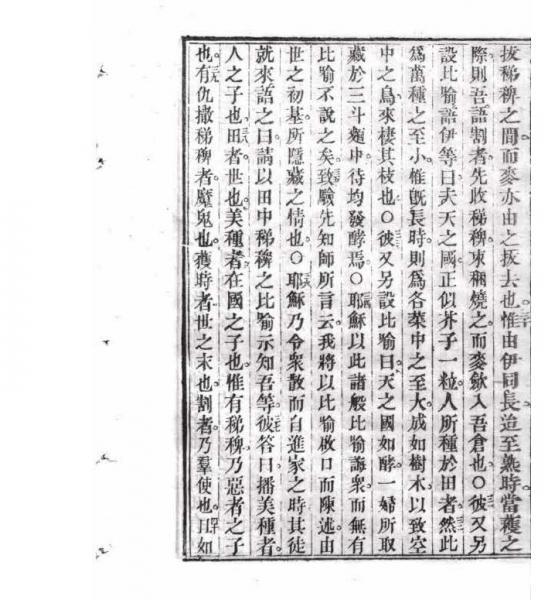 拔稊稗之間而麥亦由之拔去也惟由伊同長造至熟時當穫之
際則吾語割者先收稊稗束稇燒之而麥歛入吾倉也○彼又另
設比喻語伊等曰夫天之國正似芥子一粒人所種於田者然此
爲萬種之至小惟旣長時則爲各菜中之至大成如樹木以致空
中之鳥來棲其枝也○彼又另設比喻曰天之國如酵一婦所取
藏於三斗麵中待均發酵焉○耶穌以此諸般比喻誨衆而無有
比喻不說之矣致驗先知師所言云我將以比喻啟口而陳述由
世之初基所隱藏之情也○耶穌乃令衆散而自進家之時其徒
就來語之曰請以田中稊稗之比喻示知吾等彼答曰播美種者
人之子也田者世也美種者在國之子也惟有稊稗乃惡者之子
也有仇撒稊稗者魔鬼也穫時者世之末也割者乃羣使也如